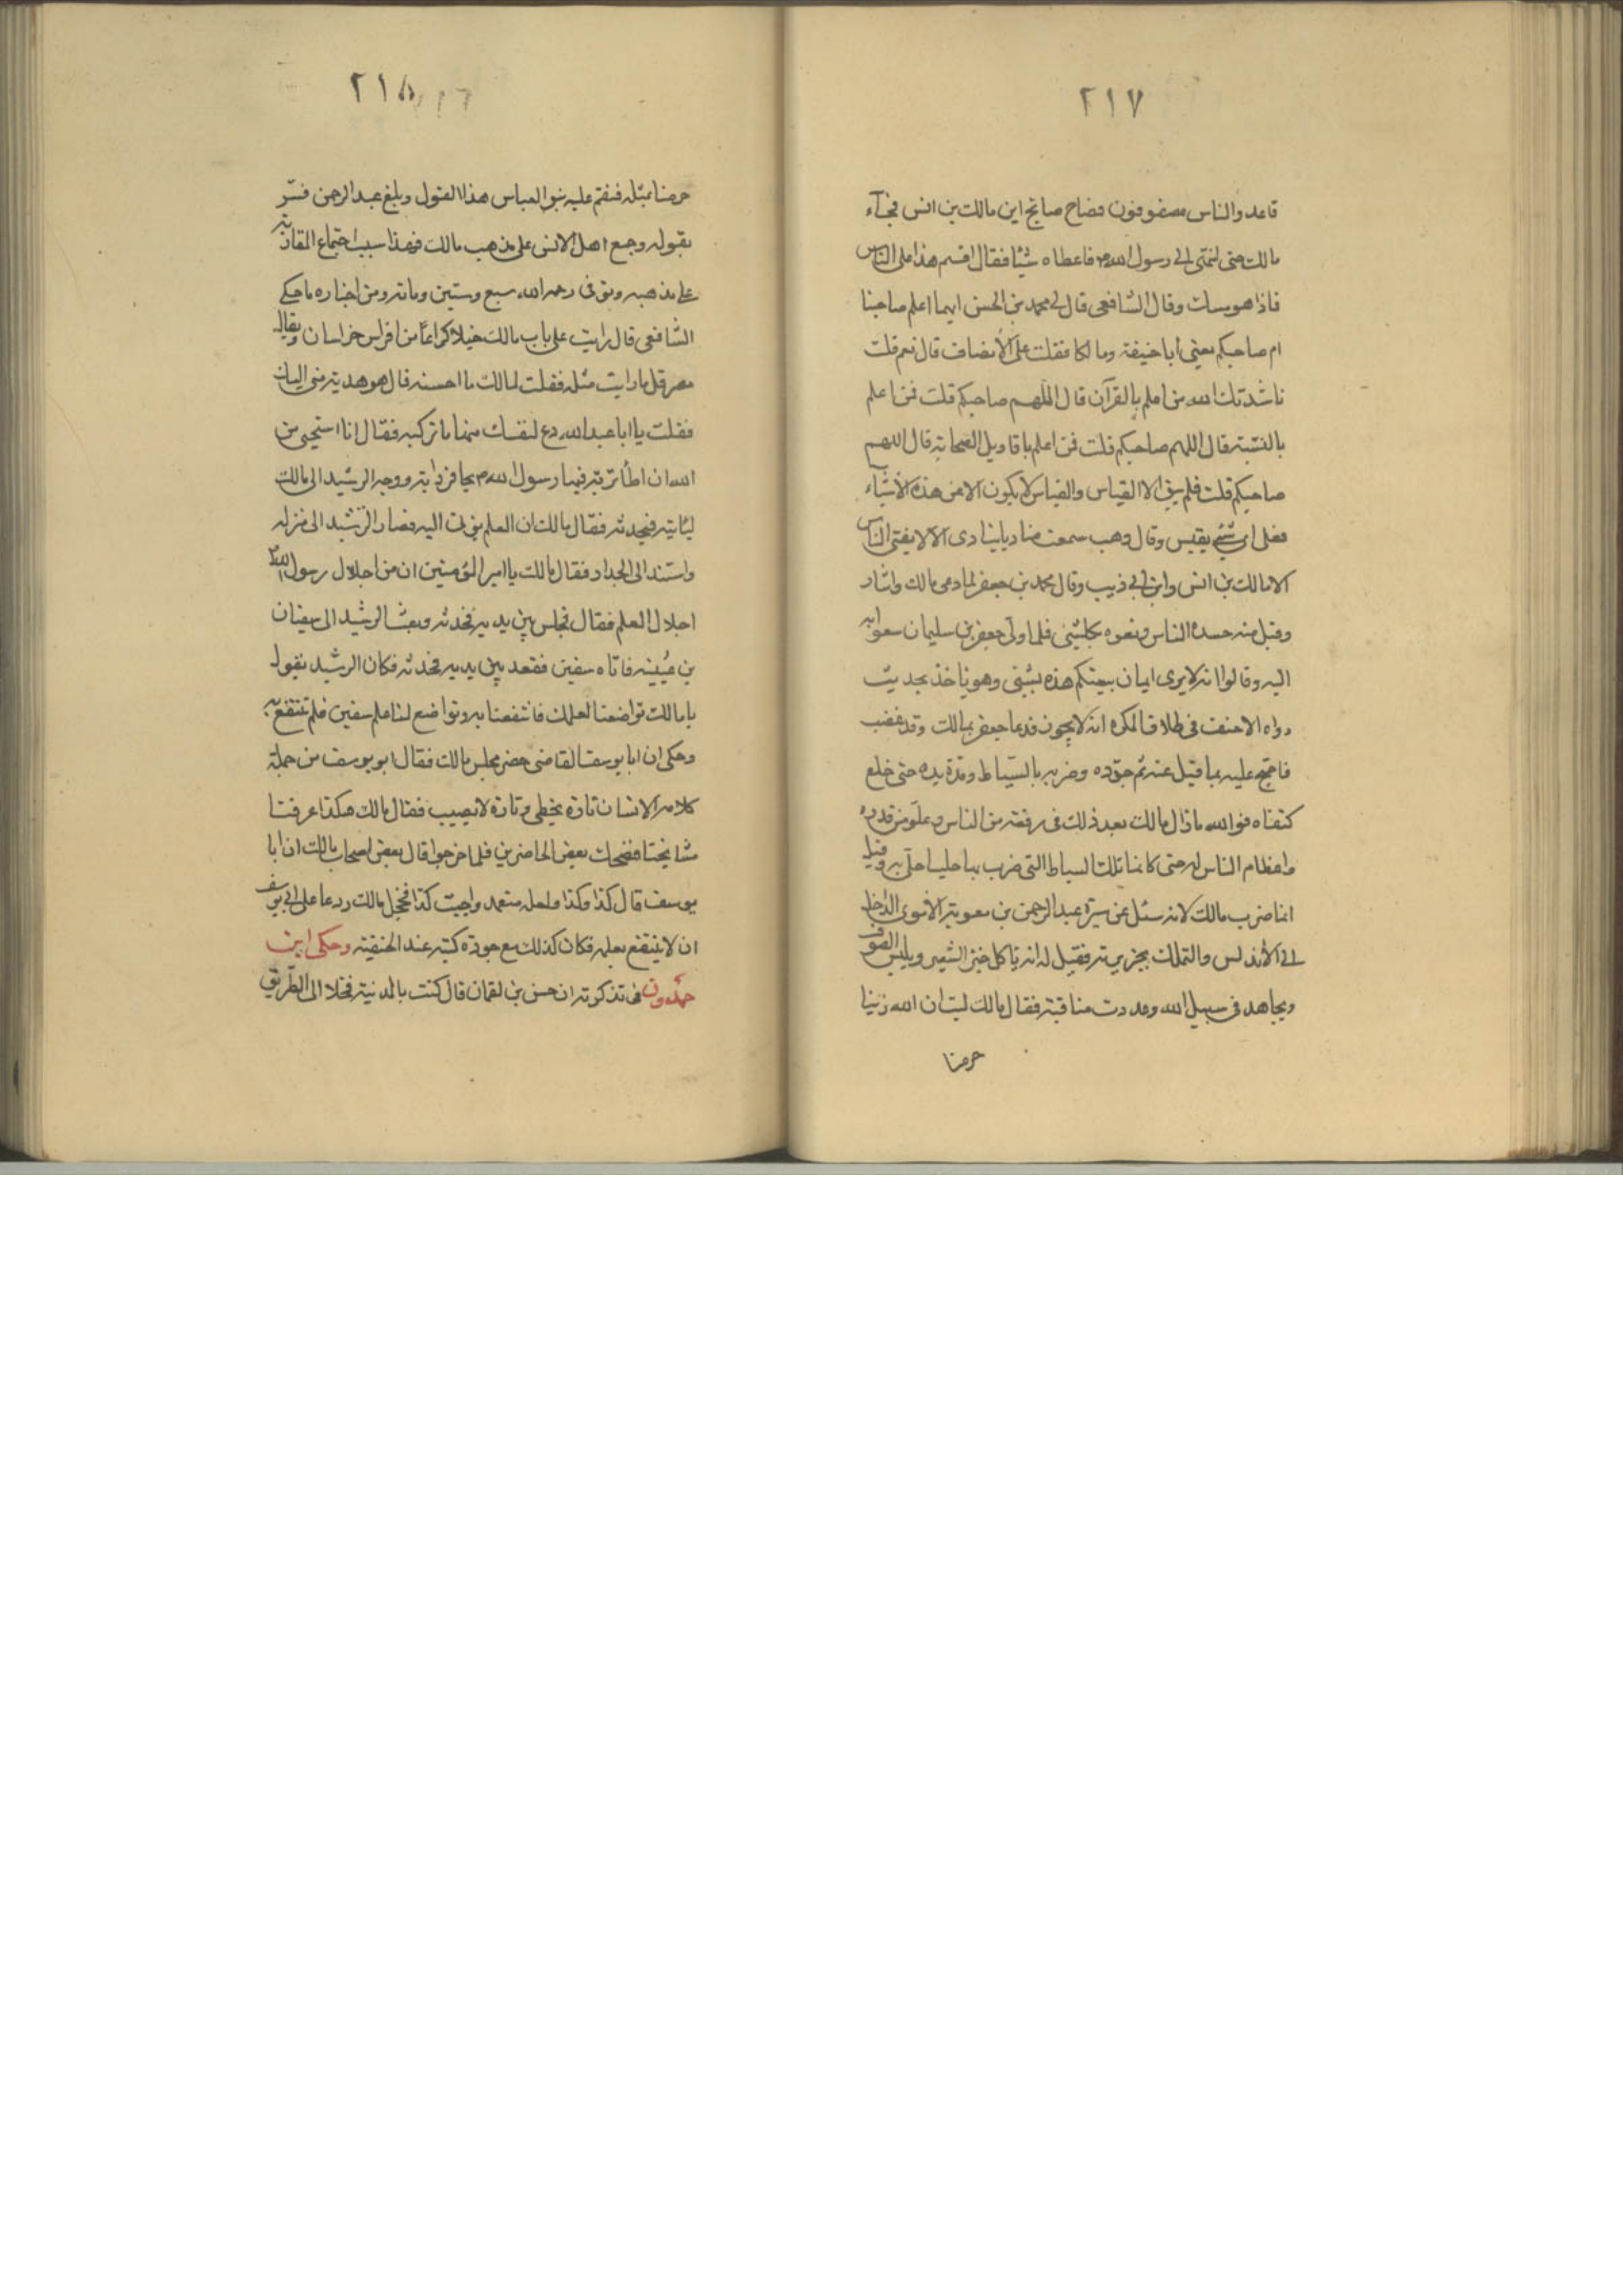 ٢١٧
قاعد والناس مصفوفون فصاح صايح اين مالك بن انس فجآء
مالك حتى انتهى الى رسول الله ص فاعطاه شيئا فقال اقسم هذا على الناس
فاذا هو مسك وقال الشافعى قال لى محمد بن الحسن ايهما اعلم صاحبنا
ام صاحبكم يعنى ابا حنيفة ومالكا فقلت على الأنصاف قال نعم قلت
ناشدتك الله من اعلم بالقرآن قال اللهم صاحبكم قلت فمن اعلم
بالسنة قال اللهم صاحبكم قلت فمن اعلم باقاويل الصحابة قال اللهم
صاحبكم قلت فلم يبق الا القياس والقياس لا يكون الا من هذه الأشيآء
فعلى اى شئ يقيس وقال وهب سمعت مناديا ينادى الا لا يفتى الناس
الا مالك بن انس وابن ابى ذيب وقال محمد بن جعفر لما دعى مالك وشار
وقبل منه حسده الناس وبغوه بكلشئ فلما ولى جعفر بن سليمان سعوا به
اليه وقالوا انه لا يرى ايمان بيعتكم هذه بشئ وهو ياخذ بحديث
رواه الاحنف فى طلاق المكره انه لا يجوز فدعا جعفر بمالك وقد غضب
فاحتج عليه بما قيل عنه ثم جرده وضربه بالسياط ومدة يده حتى خلع
كتفاه فوالله مازال مالك بعد ذلك فى رفعة من الناس وعلو من قدره
واعظام الناس له حتى كانما تلك السياط التى ضرب بها حليا حلى به وقيل
انما ضرب مالك لانه سئل عن سيرة عبد الرحمن بن معوية الأموى الداخل
الى الأندلس والتملك بجزيرته فقيل له انه ياكل خبز الشعير ويلبس الصوف
ويجاهد فى سبيل الله وعددت مناقبه فقال مالك ليت ان الله زينا
حرمنا
٢١٨
حرمنا بمثله فنقم عليه بنو العباس هذا القول وبلغ عبد الرحمن فسّر
بقوله وجمع اهل الانس على مذهب مالك فهذا سبب اجتماع المغاربة
على مذهبه وتوفى رحمه الله سبع وستين ومائة ومن اخباره ما حكى
الشافعى قال رايت على باب مالك خيلا كراعا من افراس خراسان وبغال
مصر قل ما رايت مثله فقلت لمالك ما احسنه قال هو هدية منى اليك
فقلت يا ابا عبد الله دع لنفسك منها ما تركبه فقال انا استحى من
الله ان اطأ تربة فيها رسول الله ص بحافر دابة ووجه الرشيد الى مالك
لياتيه فيحدثه فقال مالك ان العلم يؤتى اليه فصار الرشيد الى منزله
واستند الى الجدار فقال مالك يا امير المؤمنين ان من اجلال رسول الله
اجلال العلم فقال فجلس بين يديه فحدثه وبعث الرشيد الى سفيان
بن عيينه فاتاه سفين فقعد بين يديه فحدثه فكان الرشيد يقول
يا مالك تواضعنا لعلمك فانتفعنا به وتواضع لنا علم سفين فلم ننتفع به
وحكى ان ابا يوسف القاضى حضر مجلس مالك فقال ابو يوسف من جملة
كلامه الانسان تارة يخطى وتارة لا يصيب فقال مالك هكذا عرفنا
مشايخنا فضحك بعض الحاضرين فلما خرجوا قال بعض اصحاب مالك ان ابا
يوسف قال كذا وكذا ولعله متعمد واجبت كذا فخجل مالك ودعا على ابى يوسف
ان لا ينتفع بعلمه فكان كذلك مع جودة كتبه عند الحنفية وحكى ابن
حمدون فى تذكرته ان حسن بن لقمان قال كنت بالمدينة فخلا الى الطريق